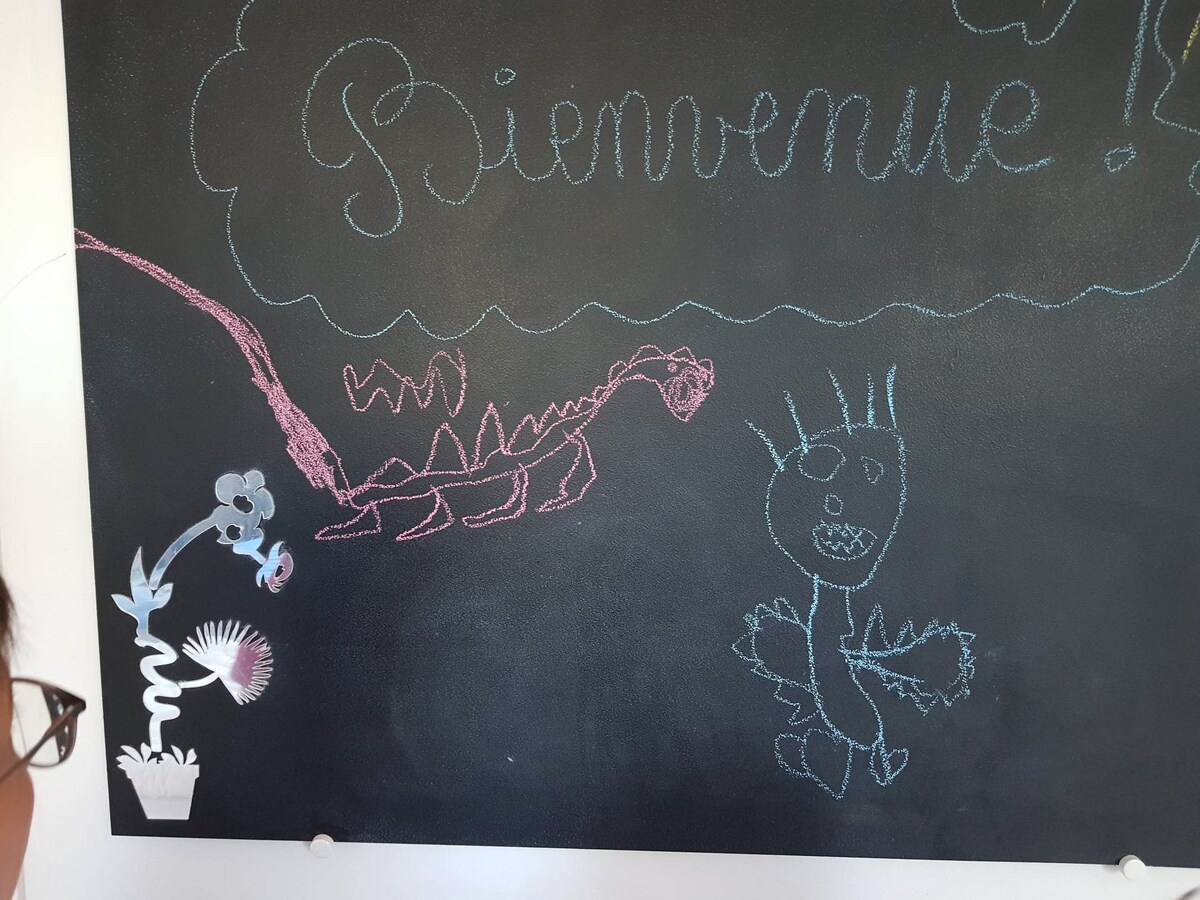 Bienvenue !